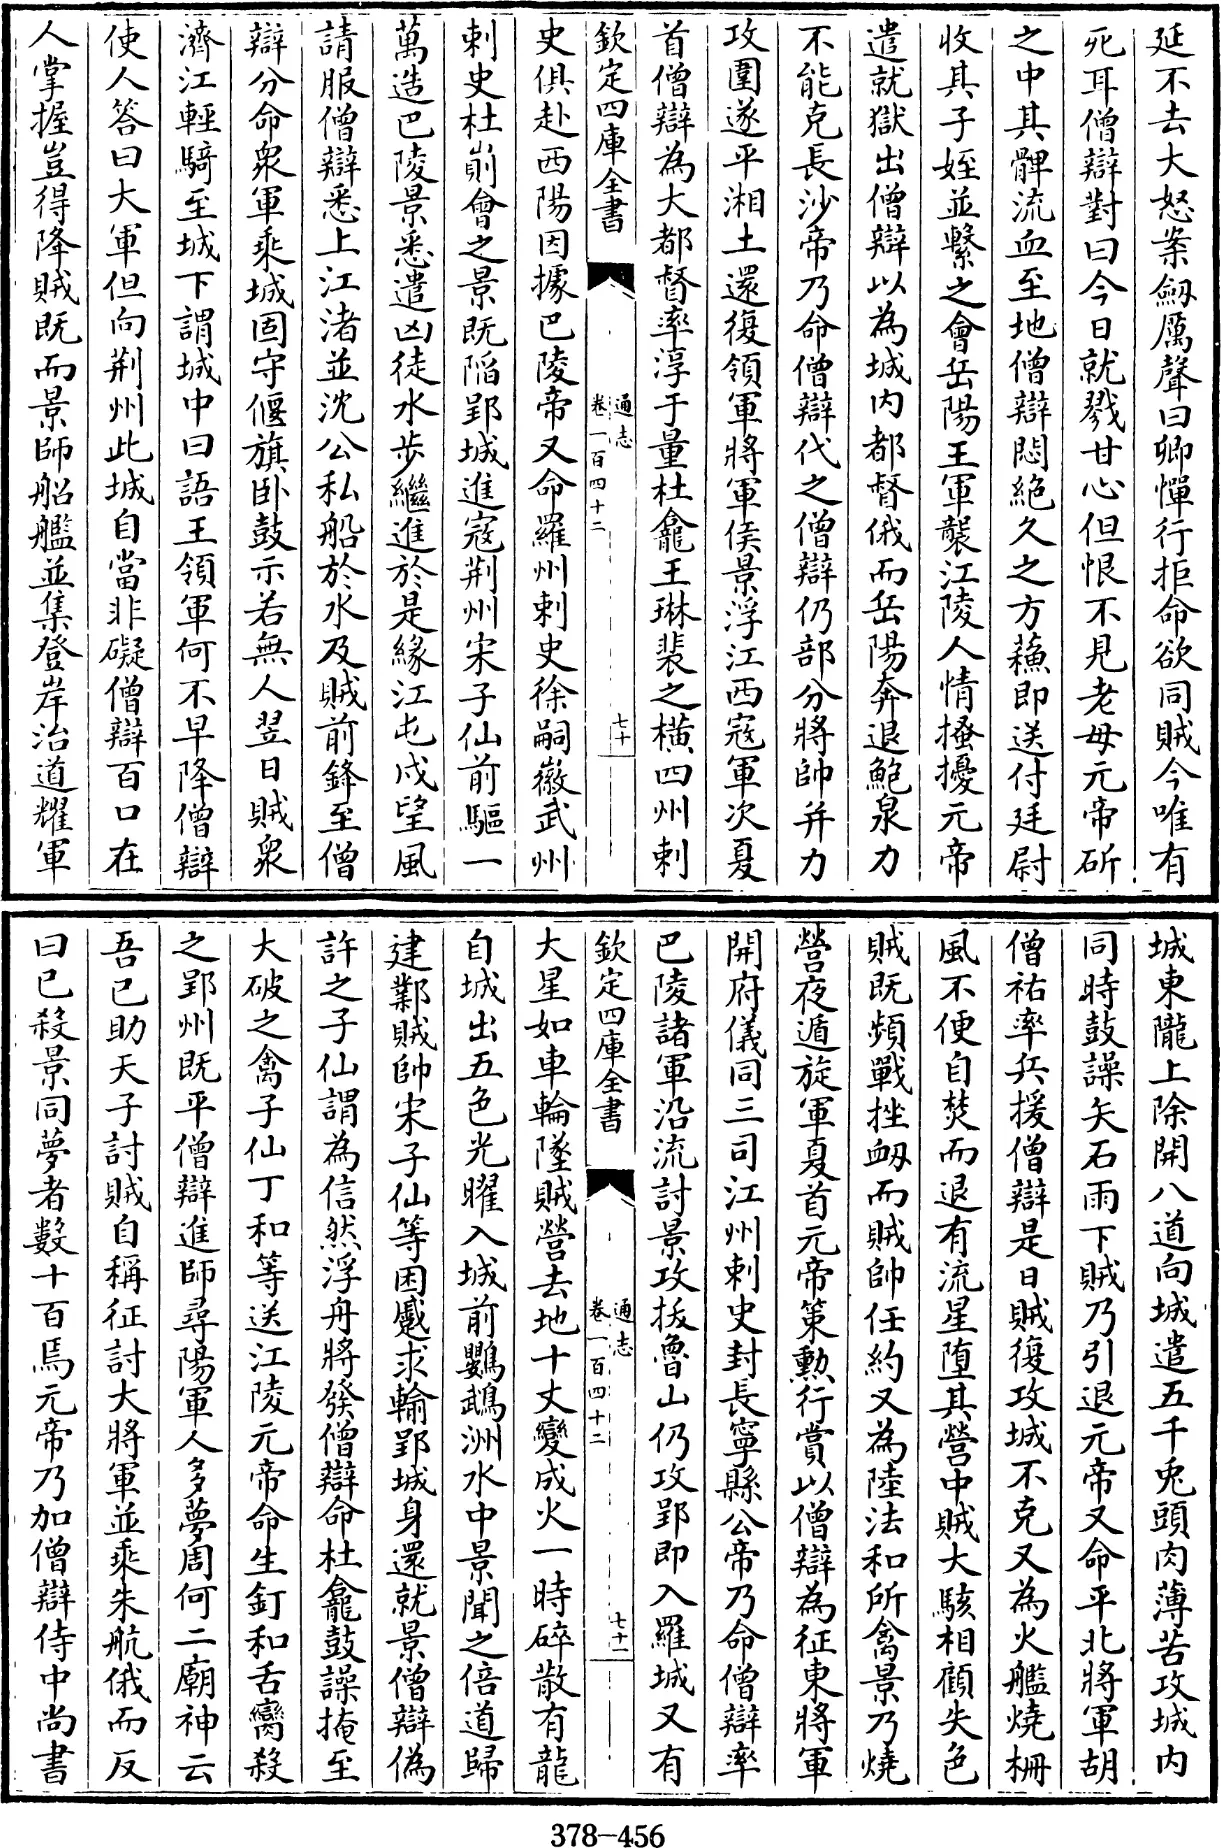 延不去大怒案劒厲聲曰卿憚行拒命欲同賊今唯有
死耳僧辯對曰今日就戮甘心但恨不見老母元帝斫
之中其髀流血至地僧辯悶絶久之方蘓即送付廷尉
收其子姪並繫之會岳陽王軍襲江陵人情搔擾元帝
遣就獄出僧辯以為城内都督俄而岳陽奔退鮑泉力
不能克長沙帝乃命僧辯代之僧辯仍部分將帥并力
攻圍遂平湘土還復領軍將軍侯景浮江西寇軍次夏
首僧辯為大都督率淳于量杜龕王琳裴之横四州刺
欽定四庫全書
通志
卷一百四十二
七十
史俱赴西陽因據巴陵帝又命羅州刺史徐嗣徽武州
刺史杜崱會之景既陷郢城進寇荆州宋子仙前驅一
萬造巴陵景悉遣凶徒水歩繼進於是緣江屯戍望風
請服僧辯悉上江渚並沈公私船於水及賊前鋒至僧
辯分命衆軍乘城固守偃旗卧鼓示若無人翌日賊衆
濟江輕騎至城下謂城中曰語王領軍何不早降僧辯
使人答曰大軍但向荆州此城自當非礙僧辯百口在
人掌握豈得降賊既而景師船艦並集登岸治道耀軍
城東隴上除開八道向城遣五千兎頭肉薄苦攻城内
同時鼓譟矢石雨下賊乃引退元帝又命平北將軍胡
僧祐率兵援僧辯是日賊復攻城不克又為火艦燒栅
風不便自焚而退有流星堕其營中賊大駭相顧失色
賊既頻戰挫衂而賊帥任約又為陸法和所禽景乃燒
營夜遁旋軍夏首元帝策勲行賞以僧辯為征東將軍
開府儀同三司江州刺史封長寧縣公帝乃命僧辯率
巴陵諸軍沿流討景攻拔魯山仍攻郢即入羅城又有
欽定四庫全書
通志
卷一百四十二
七十一
大星如車輪墜賊營去地十丈變成火一時碎散有龍
自城出五色光曜入城前鸚鵡洲水中景聞之倍道歸
建鄴賊帥宋子仙等困蹙求輸郢城身還就景僧辯偽
許之子仙謂為信然浮舟將發僧辯命杜龕鼓譟掩至
大破之禽子仙丁和等送江陵元帝命生釘和舌臠殺
之郢州既平僧辯進師尋陽軍人多夢周何二廟神云
吾已助天子討賊自稱征討大將軍並乘朱航俄而反
曰已殺景同夢者數十百焉元帝乃加僧辯侍中尚書
378-456